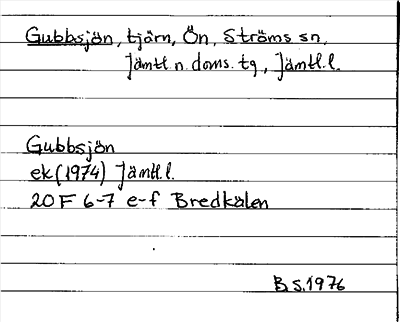 Gubbsjön, tjärn, Ön, Ströms sn,
Jämtl. n. doms. tg., Jämtl. l.
Gubbsjön
ek (1974) Jämtl. l.
20 F 6-7 e-f Bredkälen
B.S. 1976